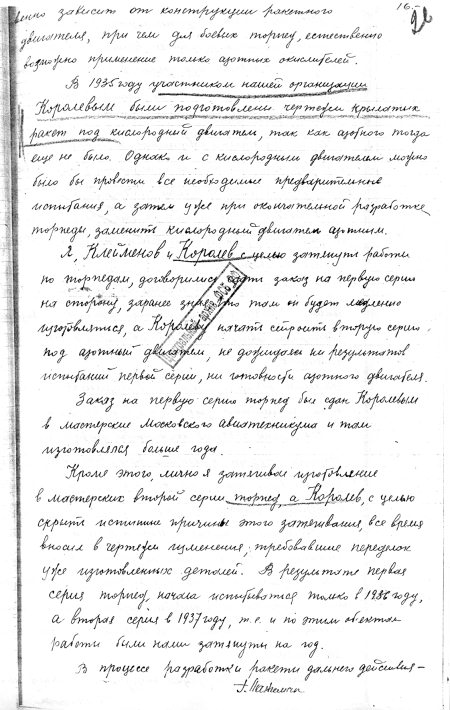 16.
26
венно зависит от конструкции ракетного
двигателя, при чем для боевых торпед, естественно
возможно применение только азотных окислителей.
В 1935 году участником нашей организации
Королевым были подготовлены чертежи крылатых
ракет под кислородный двигатель, так как азотного тогда
еще не было. Однако и с кислородным двигателем можно
было бы провести все необходимые предварительные
испытания, а затем уже при окончательной разработке
торпеды, заменить кислородный двигатель азотным.
Я, Клейменов и Королев с целью затянуть работы
по торпедам, договорились дать заказ на первую серию
на сторону, заранее зная, что там он будет медленно
изготовляться, а Королеву начать строить вторую серию
под азотный двигатель, не дожидаясь ни результатов
испытаний первой серии, ни готовности азотного двигателя.
Заказ на первую серию торпед был сдан Королевым
в мастерские Московского Авиатехникума и там
изготовлялся больше года.
Кроме этого, лично я затягивал изготовление
в мастерских второй серии торпед, а Королев, с целью
скрыть истинные причины этого затягивания, все время
вносил в чертежи изменения, требовавшие переделок
уже изготовленных деталей. В результате первая
серия торпед начала испытываться только в 1936 году,
а вторая серия в 1937 году, т.е. и по этим объектам
работы были нами затянуты на год.
В процессе разработки ракеты дальнего действия –